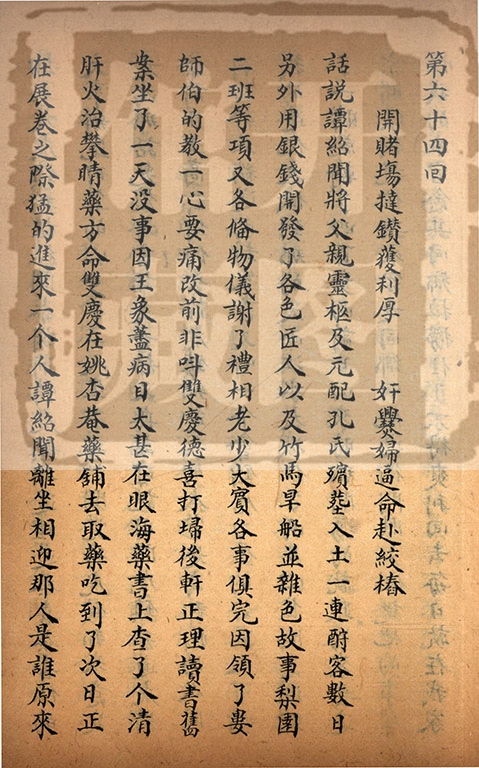 第六十四回
開賭塲撻鑽獲利厚 奸爨婦逼命赴絞樁
話説譚紹聞將父親靈柩及元配孔氏殯塟入土一連酧客數日
另外用銀錢開發了各色匠人以及竹馬旱船並雜色故事梨園
二班等項又各俻物儀謝了禮相老少大賓各事俱完因領了婁
師伯的教一心要痛改前非呌雙慶德喜打埽後軒正理讀書舊
業坐了一天没事因王象藎病目太甚在眼海藥書上查了个清
肝火治攀睛藥方命雙慶在姚杏菴藥鋪去取藥吃到了次日正
在展巻之際猛的進來一个人譚紹聞離坐相迎那人是誰原來